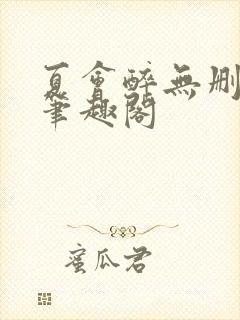 夏會醉無删
筆趣閣
蜜瓜君